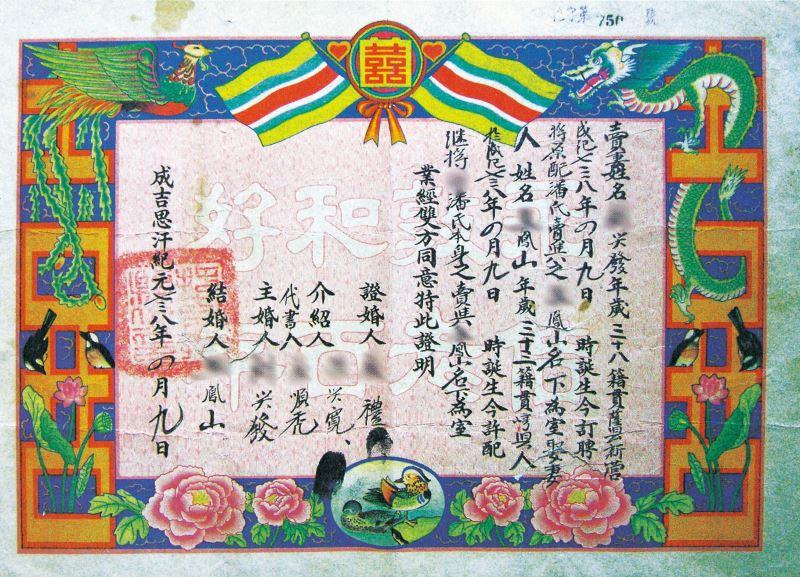 字第 756 號
囍
賣妻姓名 兴發年歲三十八籍貫舊 新營
成紀七三八年の月九日 時誕生今訂聘
將原配潘氏賣與 鳳山名下為室娶妻
人姓名 鳳山年歲三十二籍貫 與人
於成紀七三八年の月九日 時誕生今許配
继將 潘氏本身之賣與 鳳山名下為室
業經雙方同意特此證明
證婚人 禮
介紹人 兴寬、
代書人 順
主婚人 兴發
結婚人 鳳山
成吉思汗紀元七三八年の月九日